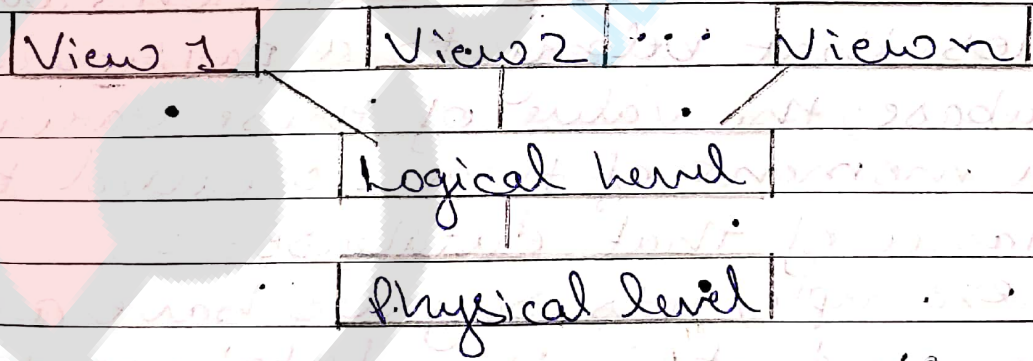 View 1 View 2 ... View n
Logical Level
Physical level